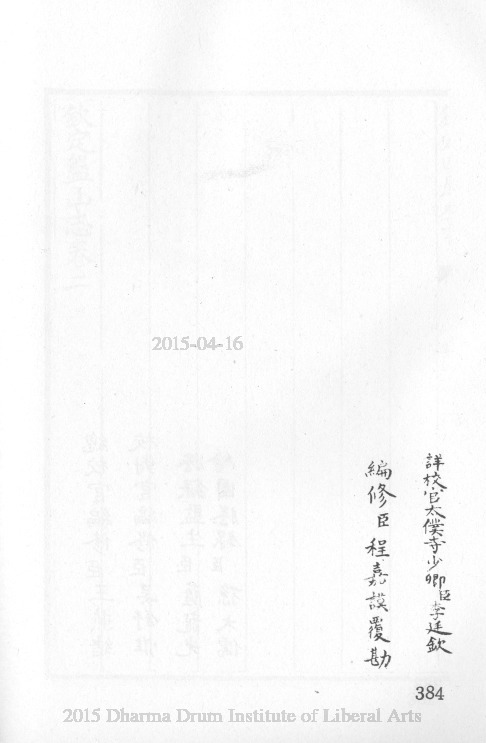 詳校官太僕寺少卿臣李廷欽
編修臣程嘉謨覆勘
2015-04-16
384
2015 Dharma Drum Institute of Liberal Arts